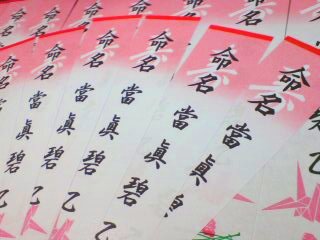 命名
命名
命名 當眞碧乙
命名 當眞碧乙
命名 當眞碧乙
命名 當眞碧
命名 當眞
命名 當眞
命名